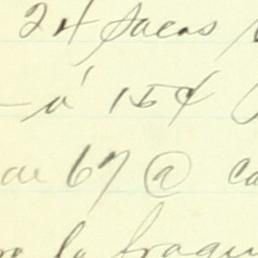 24 sacos
à 15¢
67 @ ca
la fraqu